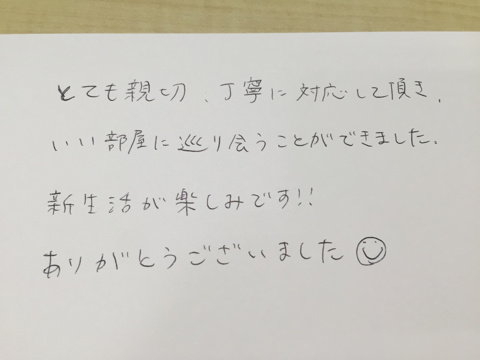 とても親切、丁寧に対応して頂き、
いい部屋に巡り会うことができました。
新生活が楽しみです!!
ありがとうございました